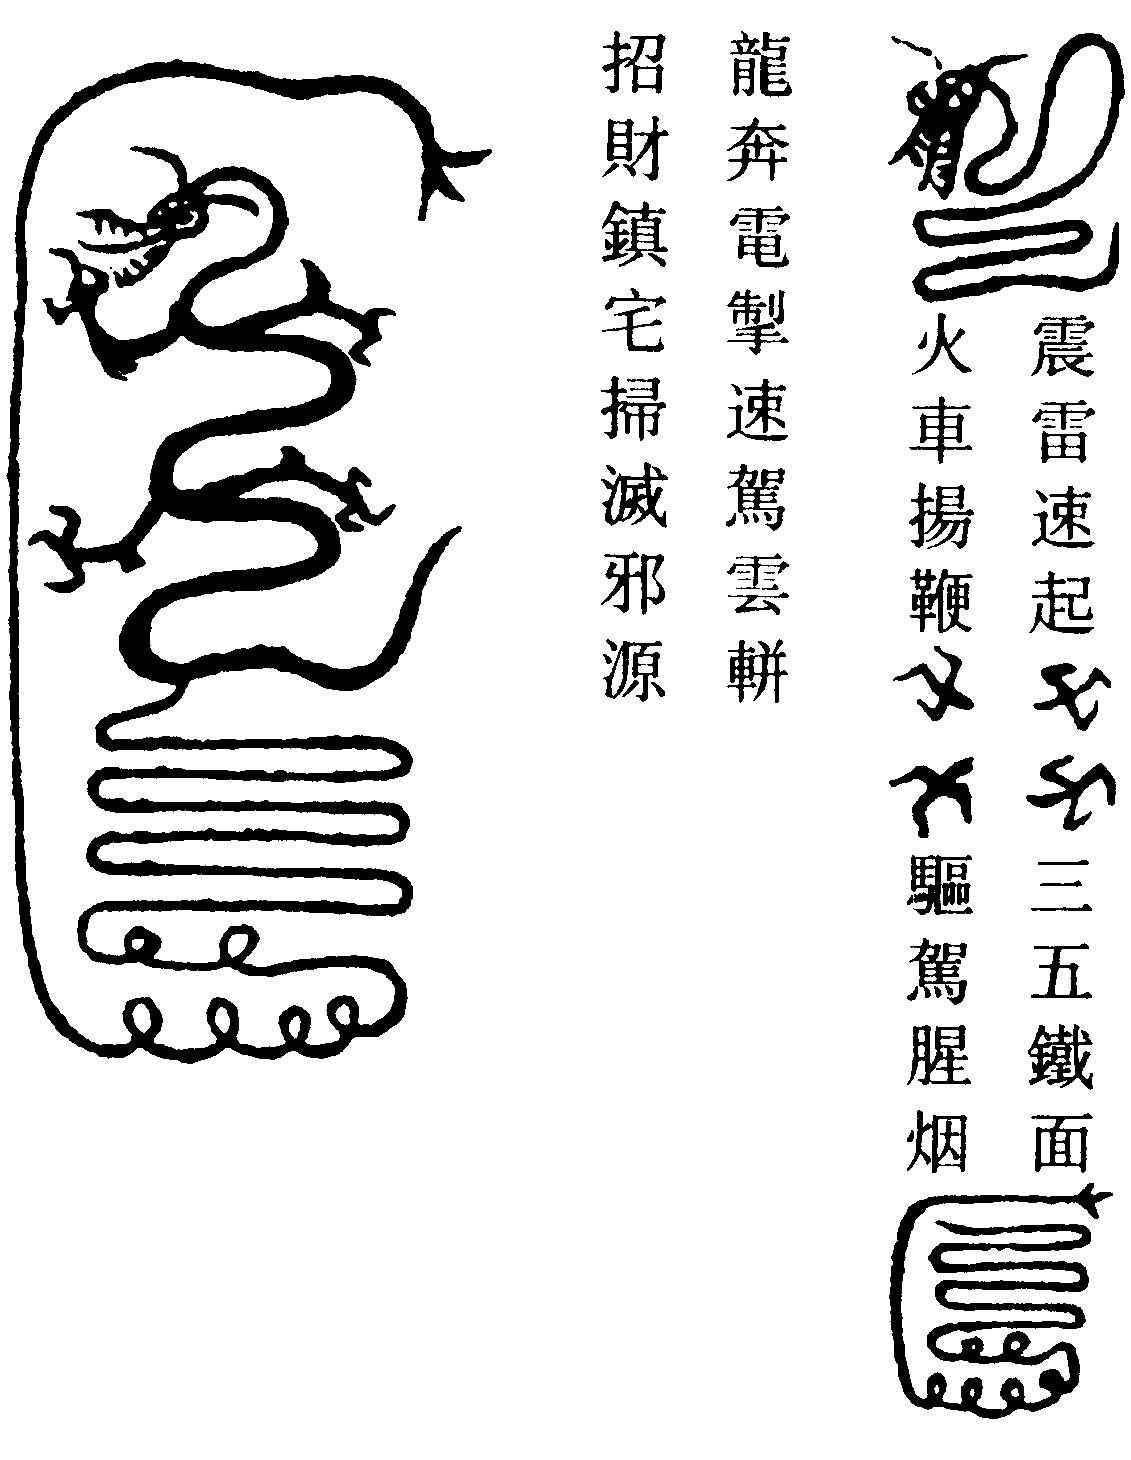 震雷速起
三五鐵面
火車揚鞭
驅駕腥烟
龍奔電掣速駕雲軿
招財鎮宅掃滅邪源